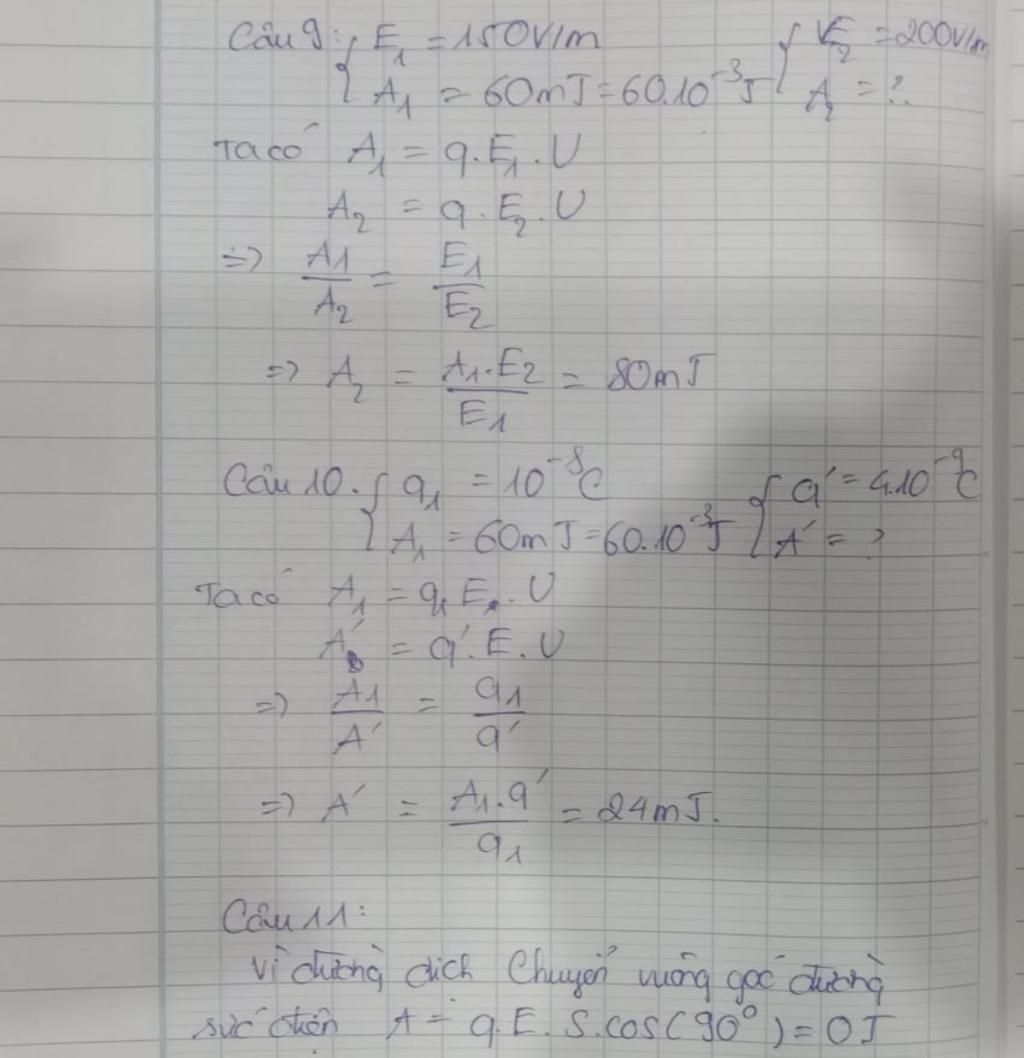 Câu 9: { E₁ = 150V/m { E₂ = 200V/m
A₁ = 60mJ = 60.10⁻³J A₂ = ?
Ta có A₁ = q.E₁.U
A₂ = q.E₂.U
=> A1/A₂ = E1/E2
=> A₂ = A₁.E2/E1 = 80mJ
Câu 10. { q₁ = 10⁻⁸C { q' = 4.10⁻⁹C
A₁ = 60mJ = 60.10⁻³J A' = ?
Ta có A₁ = q₁.E.U
A' = q'.E.U
=> A1/A' = q1/q'
=> A' = A₁.q'/q₁ = 24mJ.
Câu 11:
Vì đường dịch chuyển vuông góc đường
sức điện A = q.E.S.cos(90°) = 0J